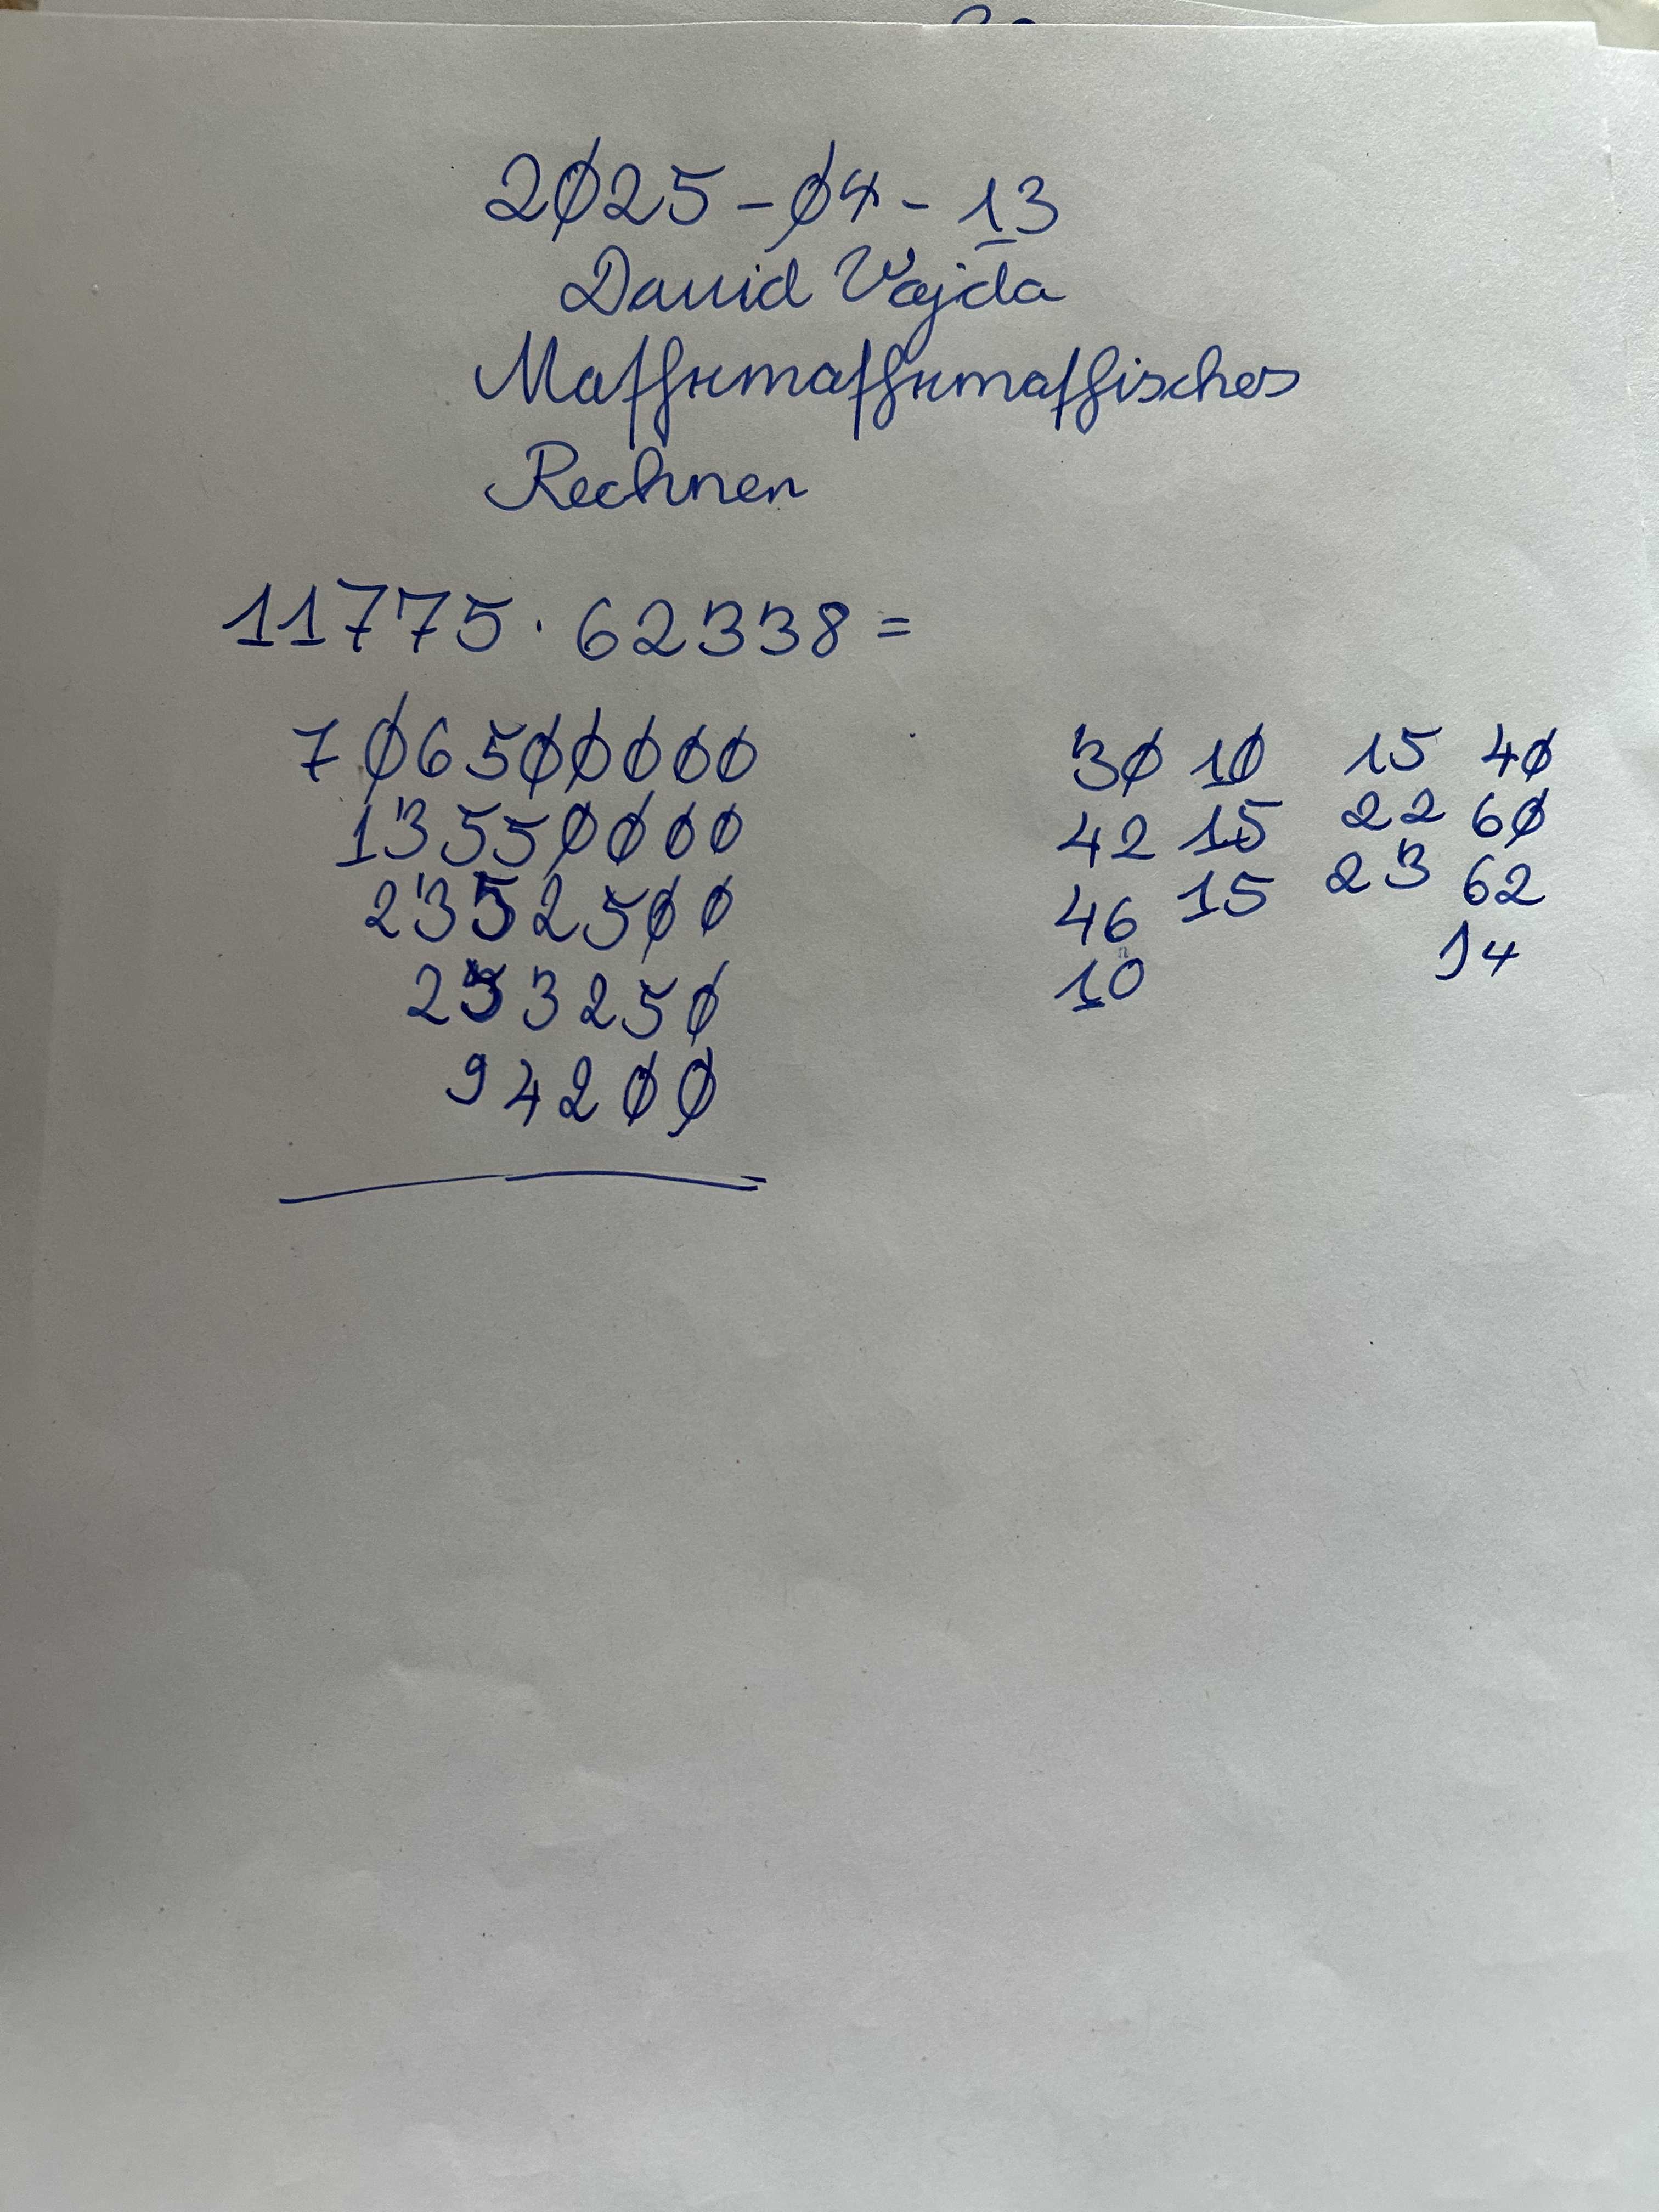 2025-04-13
David Vajda
Mathematisches
Rechnen
11775 · 62338 =
706500000 30 10 15 40
13550000 42 15 22 60
2352500 46 15 23 62
233250 10 14
94200